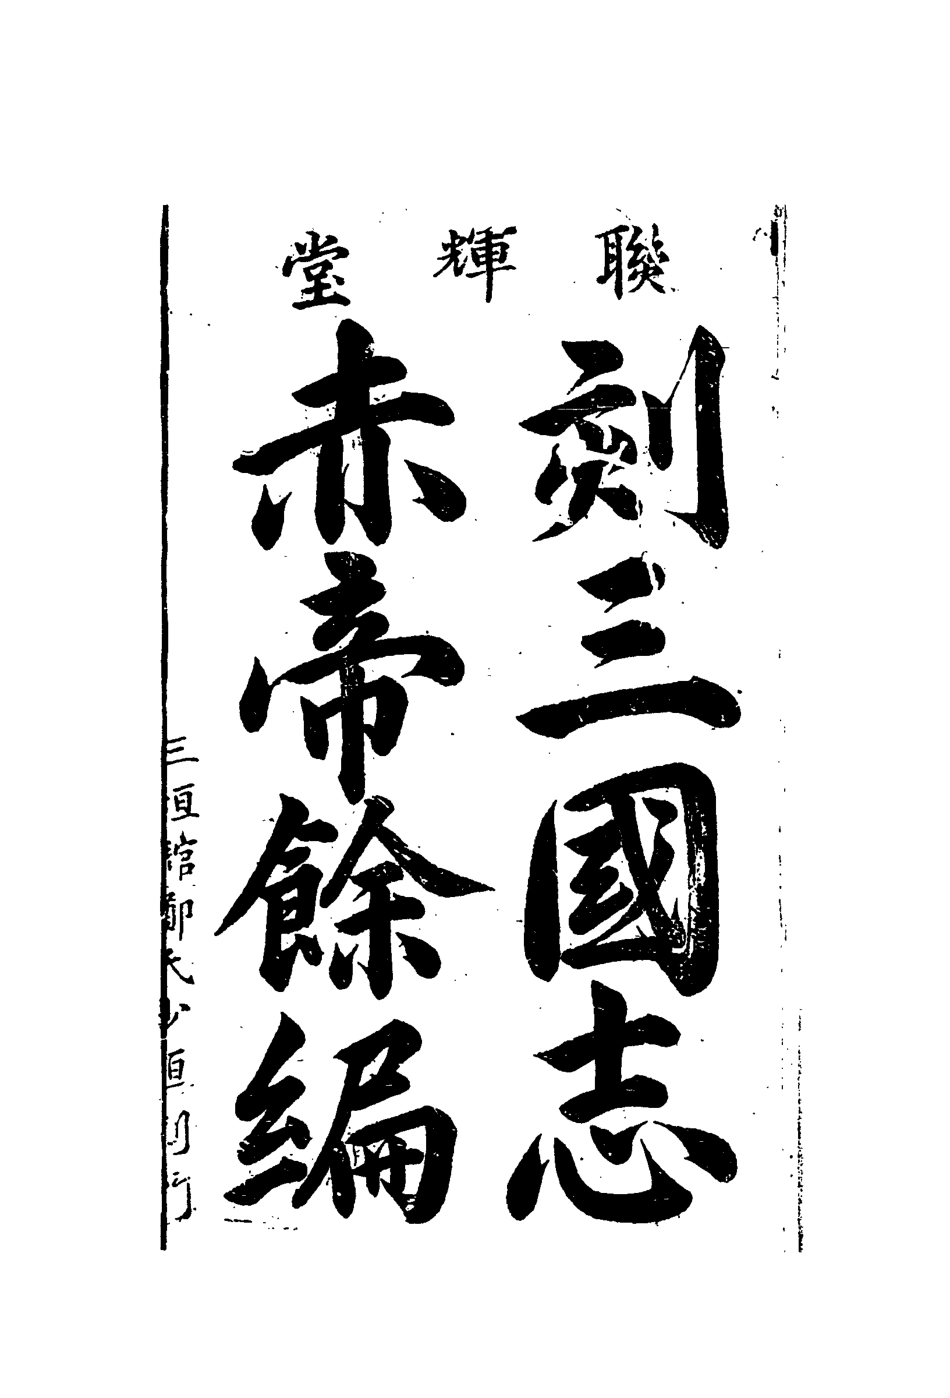 聯輝堂
刻三國志
赤帝餘編
三垣館鄭氏少垣刊行